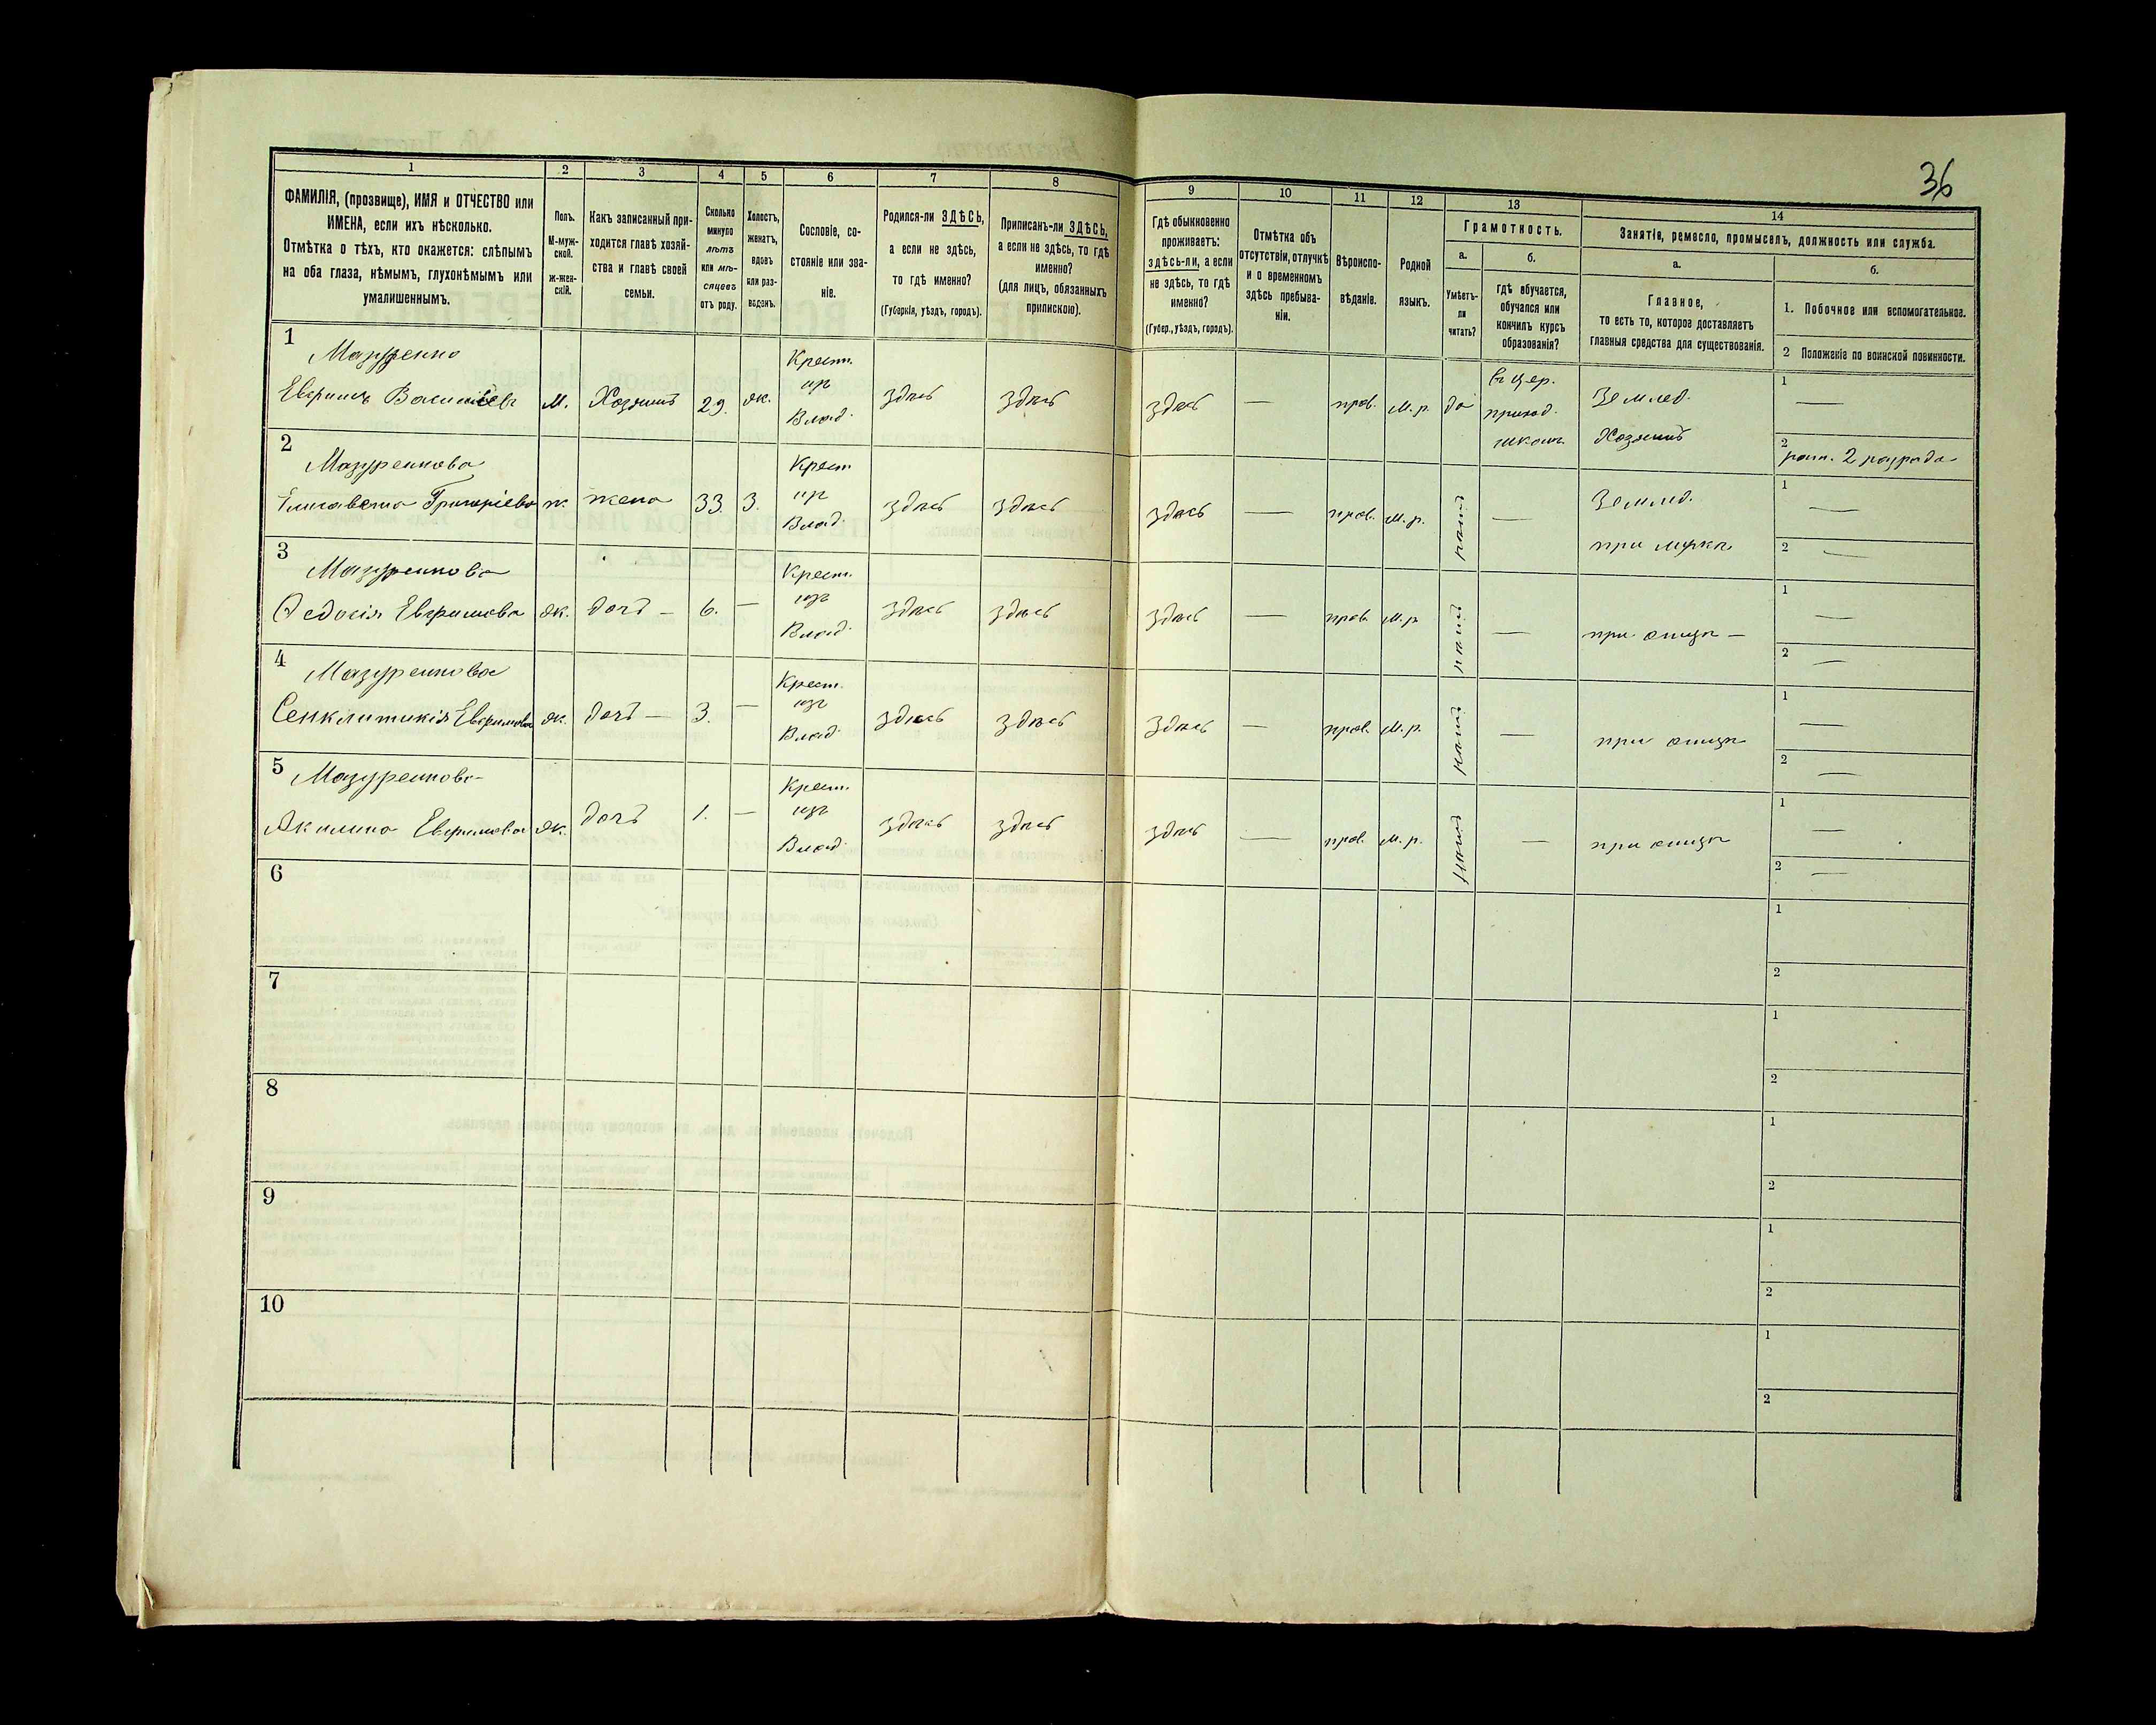 36
1
2
3
4
5
6
7
8
9
10
11
12
13
14
ФАМИЛІЯ, (прозвище), ИМЯ и ОТЧЕСТВО или
ИМЕНА, если ихъ нѣсколько.
Отмѣтка о тѣхъ, кто окажется: слѣпымъ
на оба глаза, нѣмымъ, глухонѣмымъ или
умалишеннымъ.
Полъ.
М-муж-
ской.
ж-жен-
скій.
Какъ записанный при-
ходится главѣ хозяй-
ства и главѣ своей
семьи.
Сколько
минуло
лѣтъ
или мѣ-
сяцевъ
отъ роду.
Холостъ,
женатъ,
вдовъ
или раз-
веденъ.
Сословіе, со-
стояніе или зва-
ніе.
Родился-ли ЗДѢСЬ,
а если не здѣсь,
то гдѣ именно?
(Губернія, уѣздъ, городъ).
Приписанъ-ли ЗДѢСЬ,
а если не здѣсь, то гдѣ
именно?
(для лицъ, обязанныхъ
припискою).
Гдѣ обыкновенно
проживаетъ:
здѣсь-ли, а если
не здѣсь, то гдѣ
именно?
(Губер., уѣздъ, городъ).
Отмѣтка объ
отсутствіи, отлучкѣ
и о временномъ
здѣсь пребыва-
ніи.
Вѣроиспо-
вѣданіе.
Родной
языкъ.
Грамотность.
а.
Умѣетъ-
ли
читать?
б.
гдѣ обучается,
обучался или
кончилъ курсъ
образованія?
Занятія, ремесло, промыселъ, должность или служба.
а.
Главное,
то есть то, которое доставляетъ
главныя средства для существованія.
б.
1. Побочное или вспомогательное.
2 Положеніе по воинской повинности.
1
Мазуренко
Евфимъ Васильевъ
М.
Хозяинъ
29.
ж.
Крест.
из
Влад.
здѣсь
здѣсь
здѣсь
—
прав.
м.р.
да
въ цер.
приход.
школ.
Землед.
Хозяинъ
1
—
2
ратн. 2 разряда
2
Мазуренкова
Елисавета Григоріева
ж.
жена
33.
З.
Крест
из
Влад.
здѣсь
здѣсь
здѣсь
—
прав.
м.р.
нѣтъ
—
Землед.
при мужѣ
1
—
2
—
3
Мазуренкова
Ѳедосія Евфимова
ж.
дочь —
6.
—
Крест.
изъ
Влад.
здѣсь
здѣсь
здѣсь
—
прав.
м.р.
нѣтъ
—
при отцѣ —
1
—
2
—
4
Мазуренкова
Сенклитикія Евфимова
ж.
дочь —
3.
—
Крест.
изъ
Влад.
здѣсь
здѣсь
здѣсь
—
прав.
м.р.
нѣтъ
—
при отцѣ
1
—
2
—
5
Мазуренкова
Акилина Евфимова
ж.
дочь
1.
—
Крест.
изъ
Влад.
здѣсь
здѣсь
здѣсь
—
прав.
м.р.
нѣтъ
—
при отцѣ
1
—
2
—
6
1
2
7
1
2
8
1
2
9
1
2
10
1
2